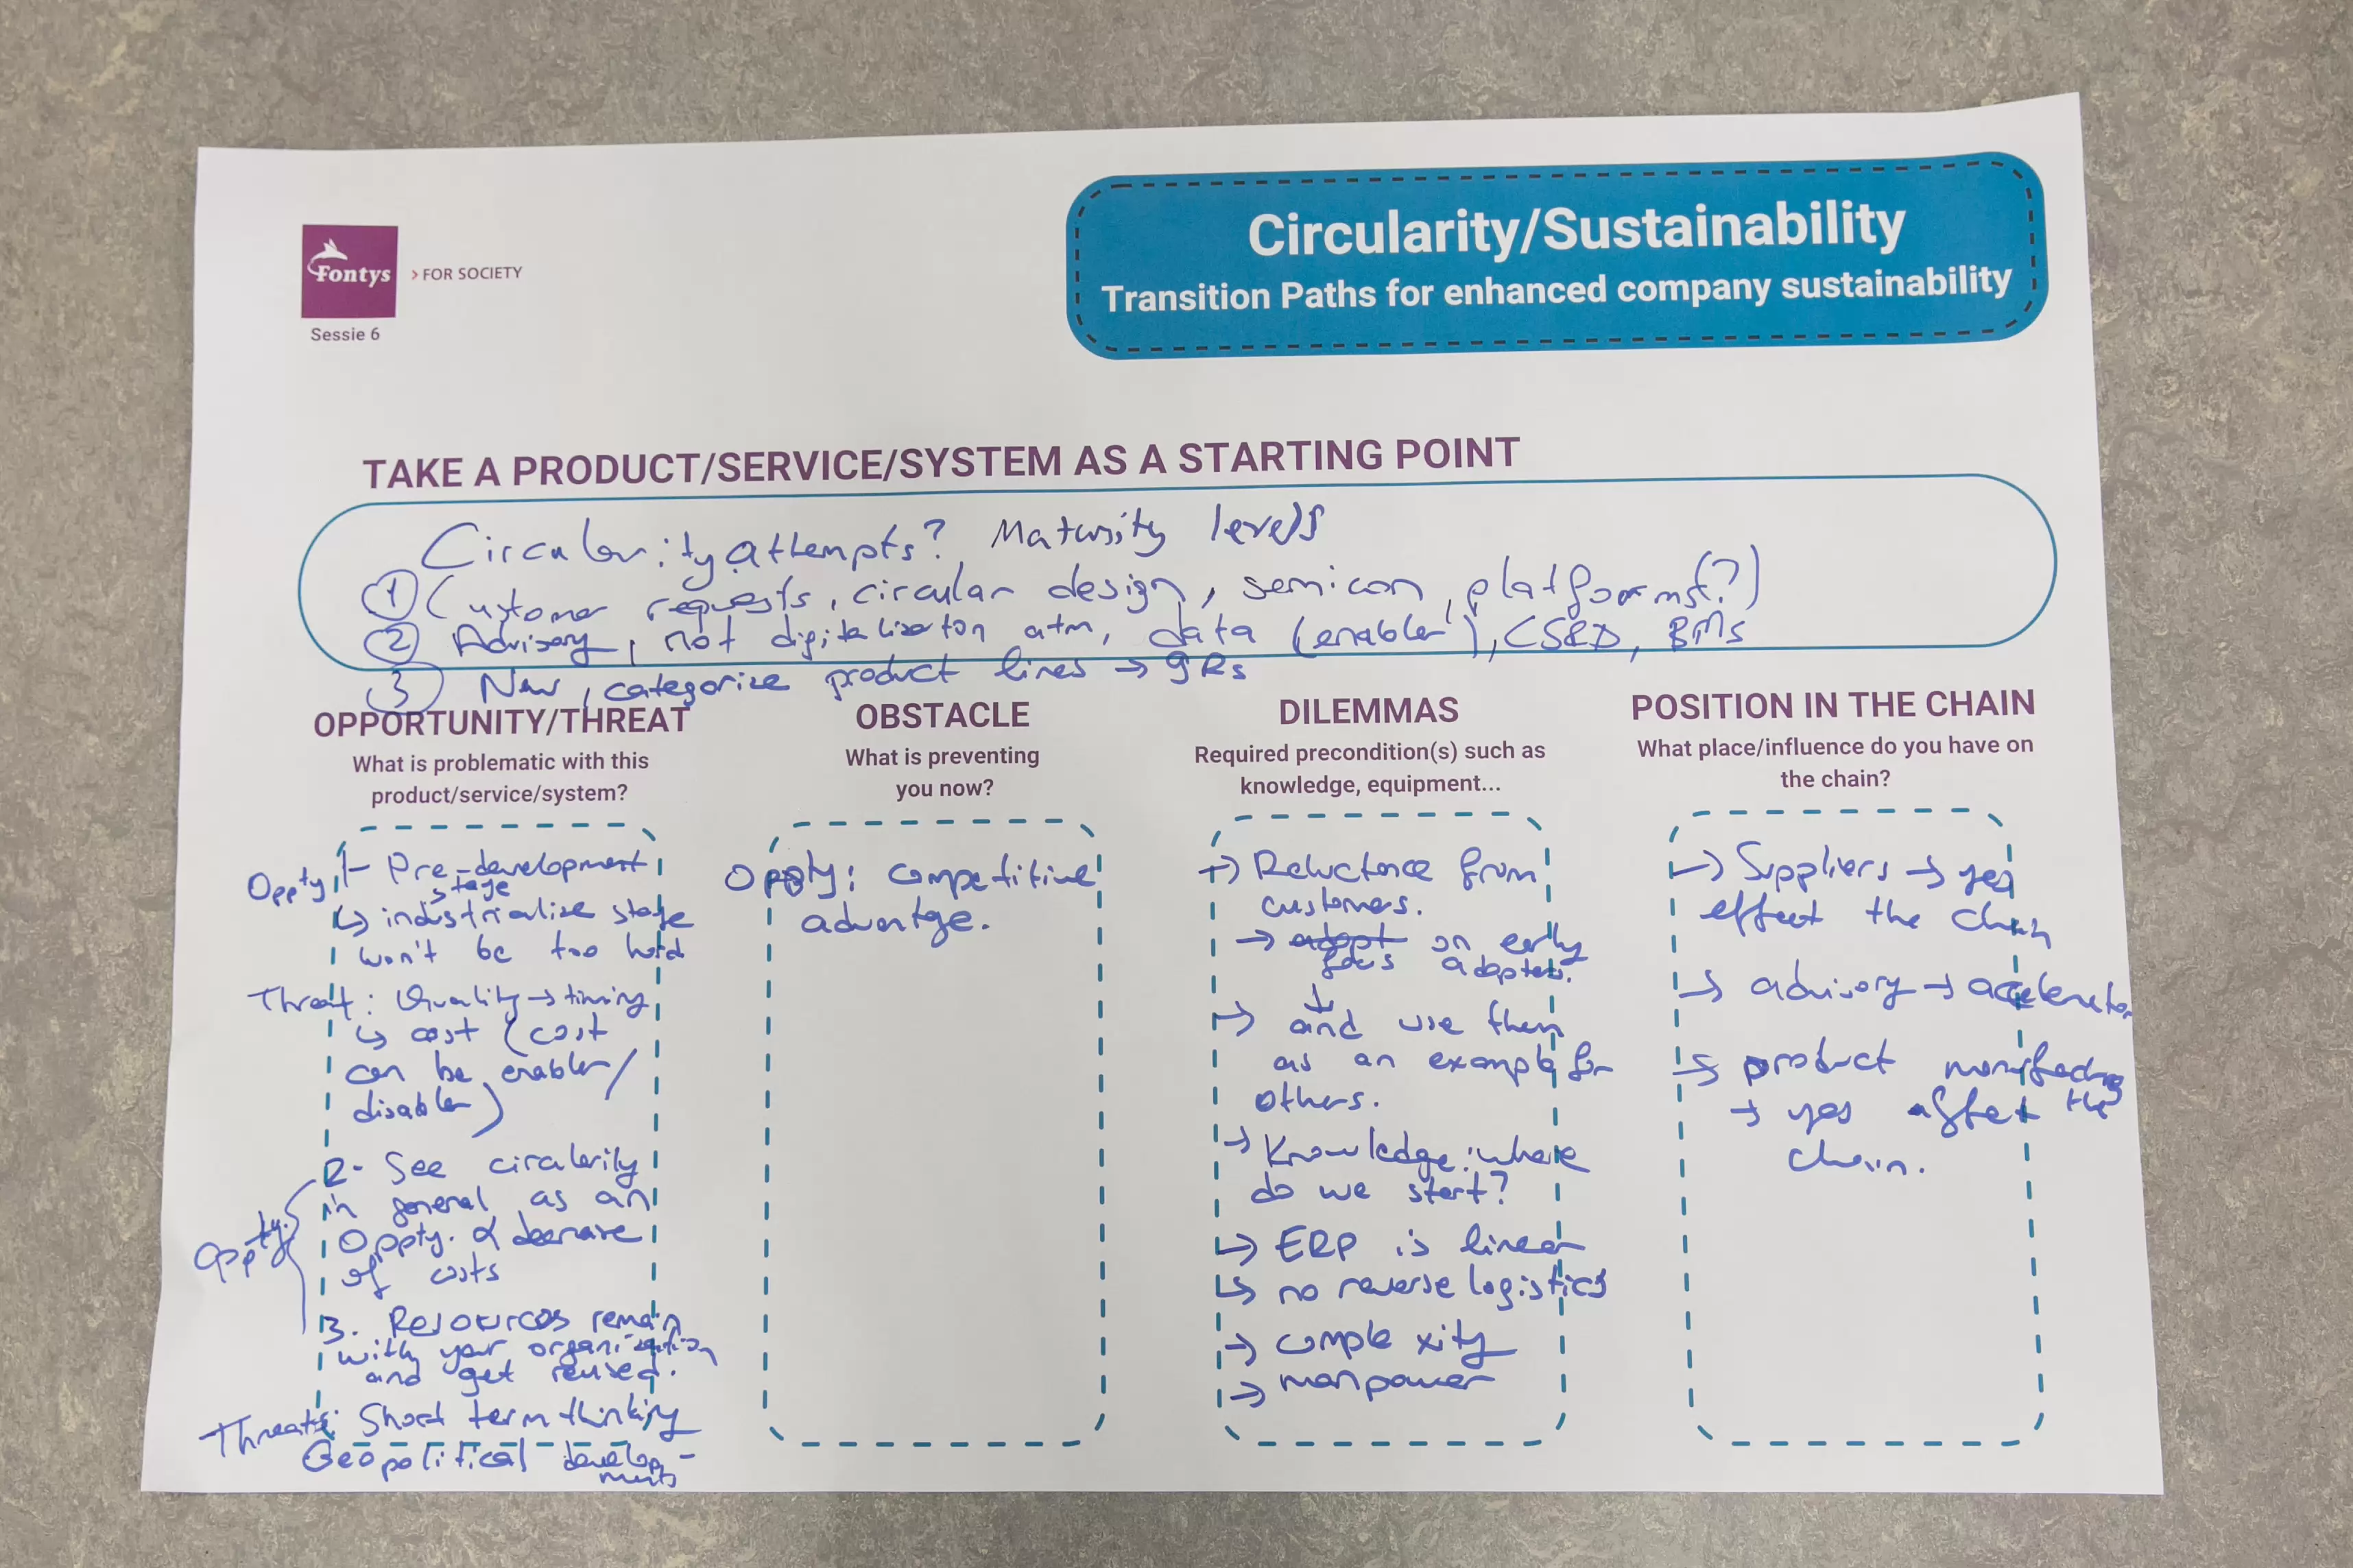 Circularity/Sustainability
Transition Paths for enhanced company sustainability
Fontys
> FOR SOCIETY
Sessie 6
TAKE A PRODUCT/SERVICE/SYSTEM AS A STARTING POINT
Circularity attempts? Maturity levels
① Customer requests, circular design, semicon, platforms(?)
② Advisory, not digitalisation atm, data (enabler), CSRD, BMs
③ New, categorize product lines → 9Rs
OPPORTUNITY/THREAT
What is problematic with this
product/service/system?
Oppty 1- Pre-development
stage
↳ industrialize stage
won't be too hard
Threat: Quality → timing
↳ cost (cost
can be enabler/
disabler)
Oppty.
2- See circularity
in general as an
Oppty. & decrease
of costs
3. Resources remain
with your organization
and get reused.
Threats: Short term thinking
Geopolitical develop-
ments
OBSTACLE
What is preventing
you now?
Oppty: competitive
advantge.
DILEMMAS
Required precondition(s) such as
knowledge, equipment...
→ Reluctance from
customers.
→ adopt on early
focus adopters.
↓
→ and use them
as an example for
others.
→ Knowledge: where
do we start?
↳ ERP is linear
↳ no reverse logistics
→ complexity
→ manpower
POSITION IN THE CHAIN
What place/influence do you have on
the chain?
→ Suppliers → yes
effect the chain
→ advisory → accelerator
→ product
→ yes affect the
chain.